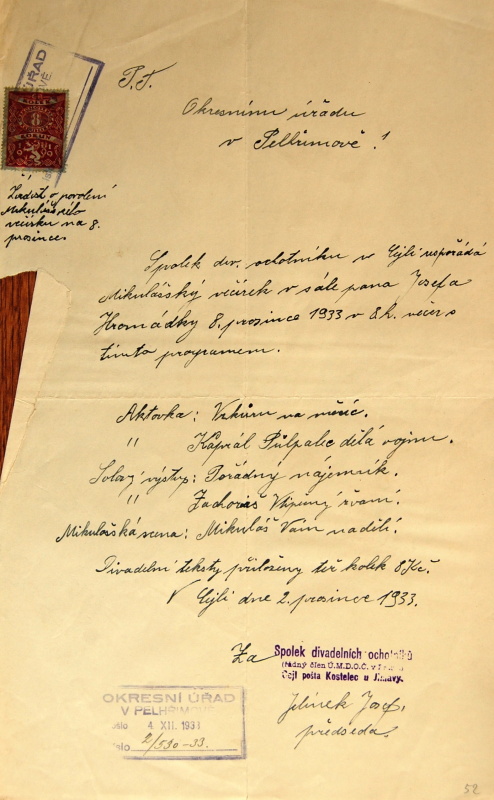 ÚŘAD
8
P.T.
Okresnímu úřadu
v Pelhřimově!
Žádost o povolení
Mikulášského
večírku na 8.
prosince.
Spolek div. ochotníku v Cejli uspořádá
Mikulášský večírek v sále pana Josefa
Hromádky 8. prosince 1933 v 8 h. večer s
tímto programem.
Aktovka: Vzhůru na měsíc.
" Kaprál Půlpalec dělá vojnu.
Solový výstup: Pořádný nájemník.
" Zachariáš
Mikulášská scena: Mikuláš Vám nadělí.
Divadelní teksty přiloženy též kolek 8 Kč.
V Cejli dne 2. prosince 1933.
Za Spolek divadelních ochotníků
(řádný člen Ú.M.D.O.Č. v
Cejl pošta Kostelec u Jihlavy.
Jelínek Josef,
předseda.
OKRESNÍ ÚŘAD
V PELHŘIMOVĚ
došlo 4. XII. 1933
číslo 2/530-33.
52